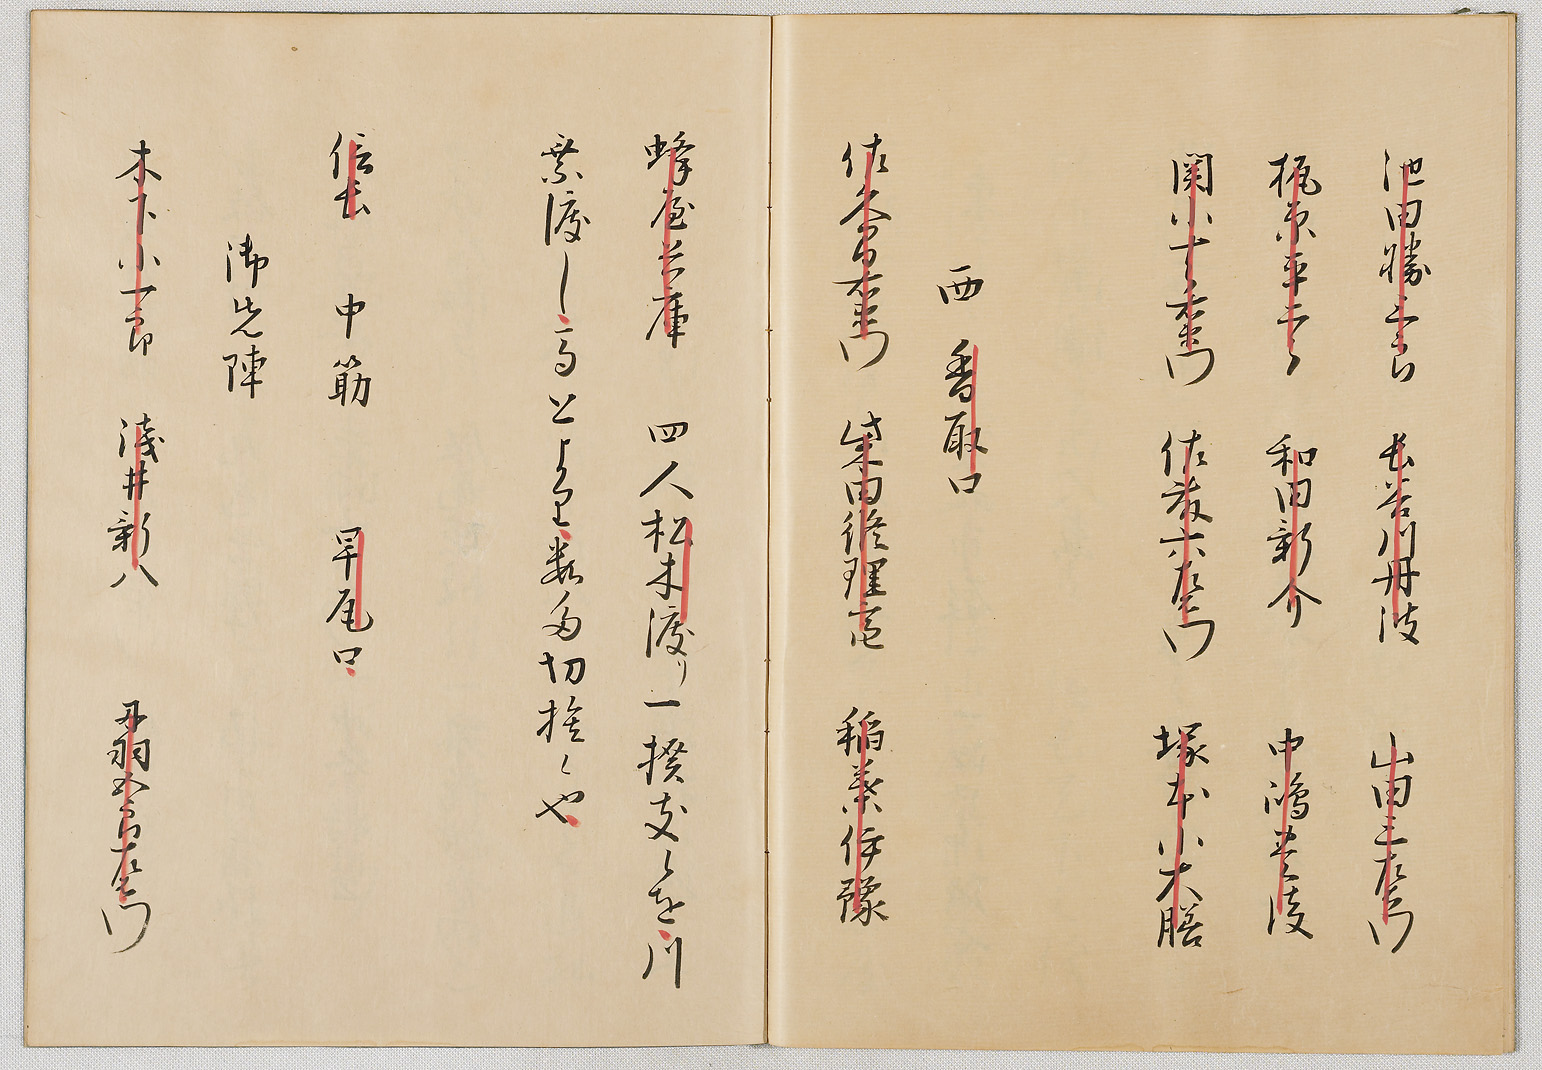 池田勝三郎　長谷川丹波　山田三左衛門
梶原平二郎　和田新介　中嶋豊後
関小十郎右衛門　佐藤六左衛門　塚本小大膳
西　香取口
佐久間右衛門　柴田修理亮　稲葉伊豫
蜂屋兵庫　四人松木渡り一揆支しを川
乗渡し馬上より数多切捨し也
信長　中筋　早尾口
御先陣
木下小一郎　浅井新八　丹羽五郎左衛門